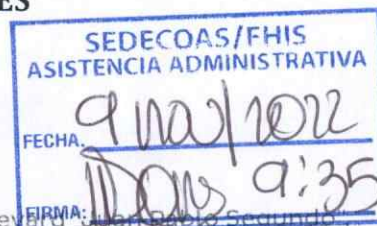 ES
SEDECOAS/FHIS
ASISTENCIA ADMINISTRATIVA
FECHA. 9 nov/2022
FIRMA: 9:35
evard "Juan Pablo Segundo"